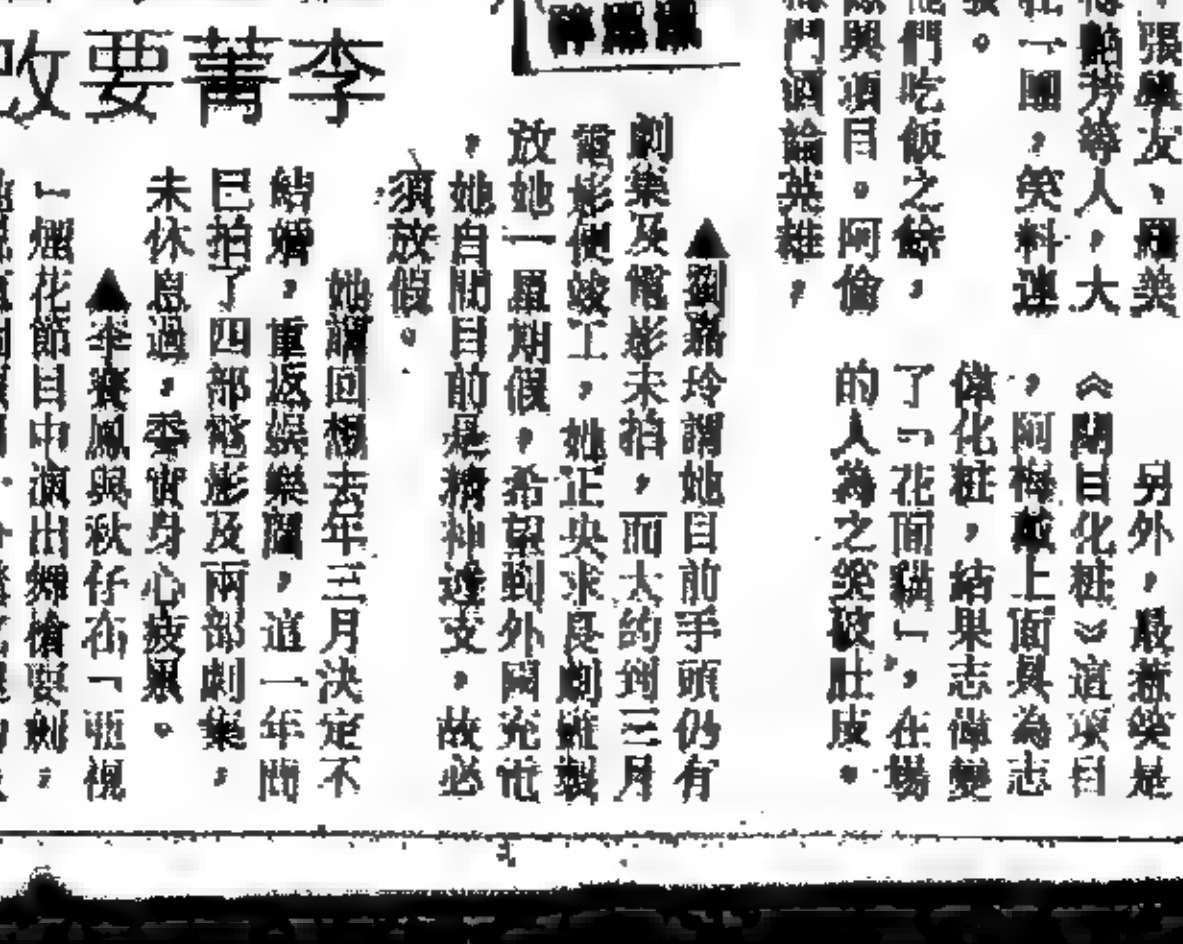 張學友、羅美
芳等人，大
「團，笑料連
。
他們吃飯之餘，
餘興項目。阿倫
梅門酒論英雄，
另外，最惹笑是
《閉目化粧》這項目
，阿梅戴上面具為志
偉化粧，結果志偉變
了「花面貓」，在場
的人為之笑破肚皮。
▲劉嘉玲謂她目前手頭仍有
劇集及電影未拍，而大約到三月
電影便竣工，她正央求長劇監製
放她一星期假，希望到外國充電
，她自問目前是精神透支，故必
須放假。
李菁要改
她謂回想去年三月決定不
結婚，重返娛樂圈，這一年間
已拍了四部電影及兩部劇集，
未休息過，委實身心疲累。
▲李賽鳳與秋仔在「亞視
」煙花節目中演出舞槍耍劍，